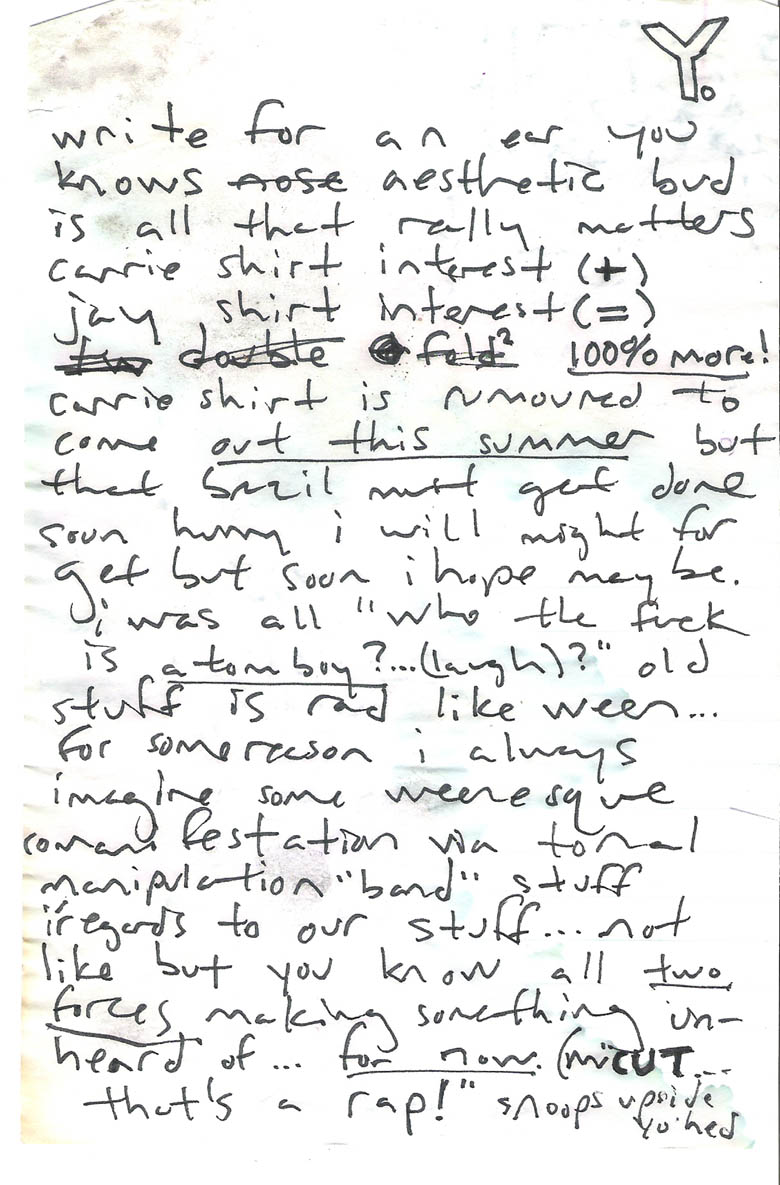 Y.
write for an ear you
knows nose aesthetic bud
is all that rally matters
carrie shirt interest (+)
jay shirt interest (=)
double fold² 100% more!
carrie shirt is rumoured to
come out this summer but
that brzil must get done
soun hurry i will might for
get but soon i hope may be.
i was all "who the fuck
is a tom boy?...(laugh)?" old
stuff is rad like ween...
for some reason i always
imagine some weenesque
comanifestation via tonal
manipulation "band" stuff
regards to our stuff... not
like but you know all two
forces making something un-
heard of... for now. CUT...
that's a rap!" snoops upside
yo hed